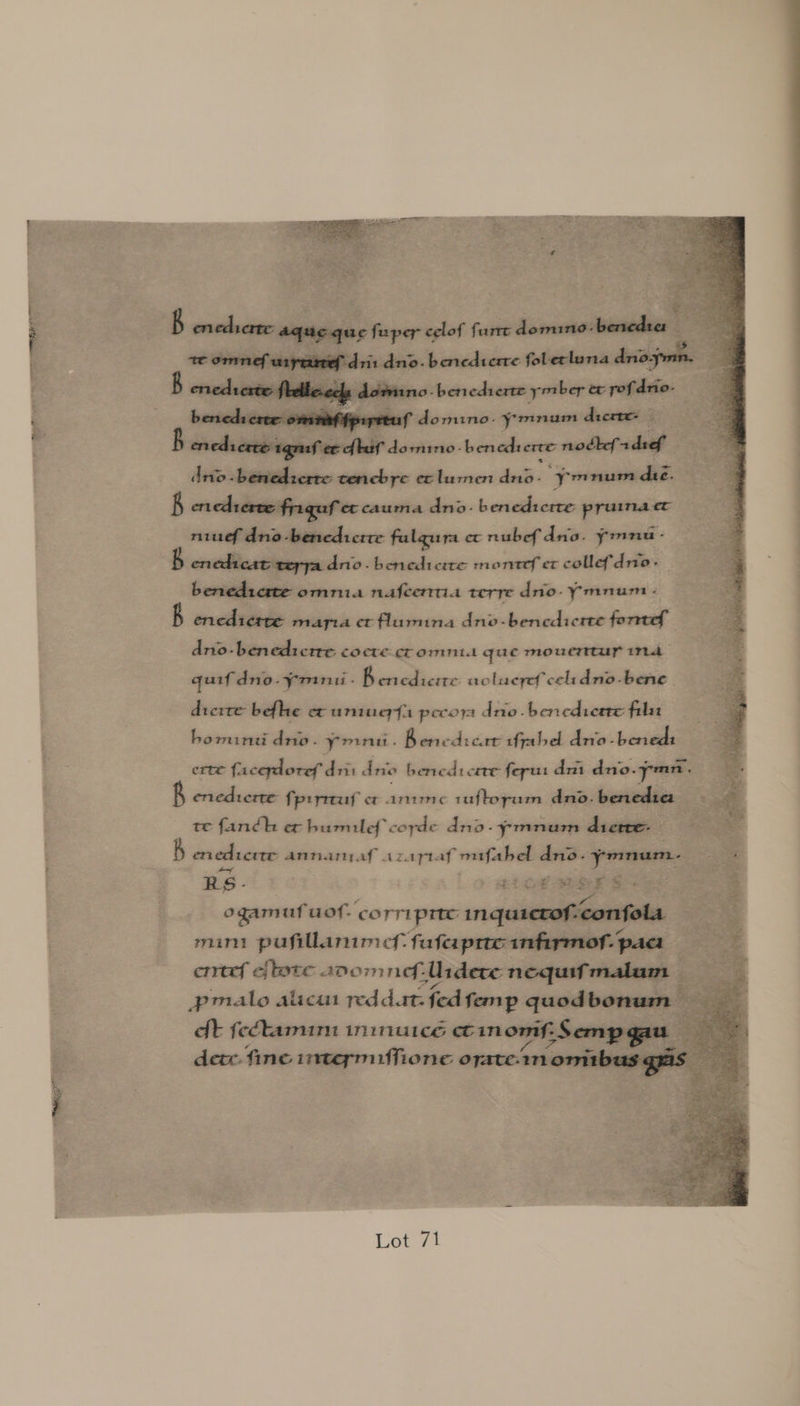 Benedicite aquę quę super cęlos sunt domino. benedici
te omnes uirtutes dn̄i dn̄o. benedicite sol et luna dn̄o. ymn̄.
Benedicite stellę cęli domino. benedicite ymber et ros dn̄o.
benedicite omnis spiritus domino. ymnum dicite.
Benedicite ignis et ęstus domino. benedicite noctes ⁊ dies
dn̄o. benedicite tenebrę et lumen dn̄o. ymnum dic̄.
Benedicite frigus et cauma dn̄o. benedicite pruina et
niues dn̄o. benedicite fulgura et nubes dn̄o. ymnū.
Benedicat terra dn̄o. benedicite montes et colles dn̄o.
benedicite omnia nascentia terrę dn̄o. ymnum.
Benedicite maria et flumina dn̄o. benedicite fontes
dn̄o. benedicite coetę et omnia quę mouentur in a
quis dn̄o. ymnū. Benedicite uolucres cęli dn̄o. bene
dicite bestię et uniuersa pecora dn̄o. benedicite filii
hominū dn̄o. ymnū. Benedicat israhel dn̄o. benedi
cite sacerdotes dn̄i dn̄o benedicite serui dn̄i dn̄o. ymn̄.
Benedicite spiritus et animę iustorum dn̄o. benedici
te sancti et humiles corde dn̄o. ymnum dicite.
Benedicite annanias azarias misahel dn̄o. ymnum.
RS.
ogamus uos. corripite inquietos. consola
mini pusillanimes. suscipite infirmos. paci
entes estote ad omnes. Uidete ne quis malum
p malo alicui reddat. sed semp quod bonum
est sectamini in inuicē et in om̄s. Semp gau
dete. sine intermissione orate. in om̄ibus gr̄as
Lot 71